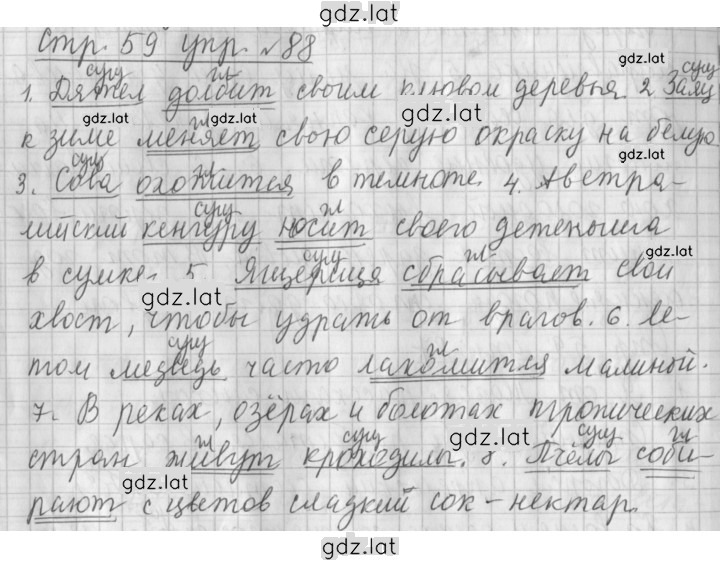 gdz.lat
стр. 59 упр. №88
gdz.lat
сущ гл сущ
1. Дятел долбит своим клювом деревья. 2 Заяц
gdz.lat гл gdz.lat
к зиме меняет свою серую окраску на белую
сущ гл gdz.lat
3. Сова охотится в темноте. 4. Австра-
сущ гл
лийский кенгуру носит своего детеныша
сущ гл gdz.lat
в сумке. 5 Ящерица сбрасывает свой
gdz.lat
хвост, чтобы удрать от врагов. 6. Ле-
сущ гл
том медведь часто лакомится малиной.
7. В реках, озёрах и болотах тропических
гл сущ gdz.lat сущ гл
стран живут крокодилы. 8. Пчёлы соби-
gdz.lat
рают с цветов сладкий сок - нектар.
gdz.lat